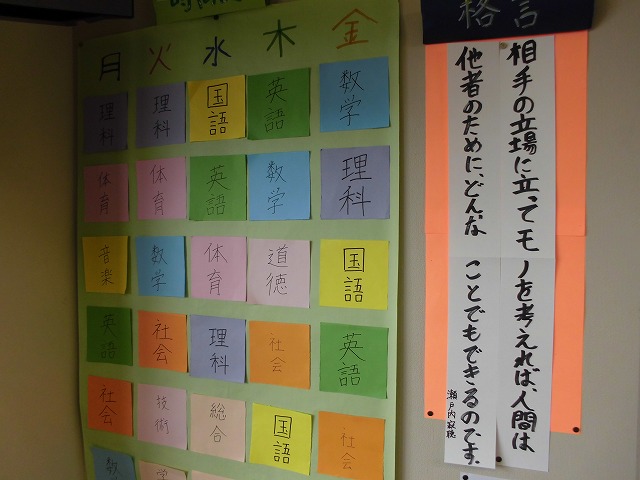 月 火 水 木 金
理科 理科 国語 英語 数学
体育 体育 英語 数学 理科
音楽 数学 体育 道徳 国語
英語 社会 理科 社会 英語
社会 技術 総合 国語 社会
数 学
格言
相手の立場に立ってモノを考えれば、人間は
他者のために、どんな ことでもできるのです。
瀬戸内寂聴